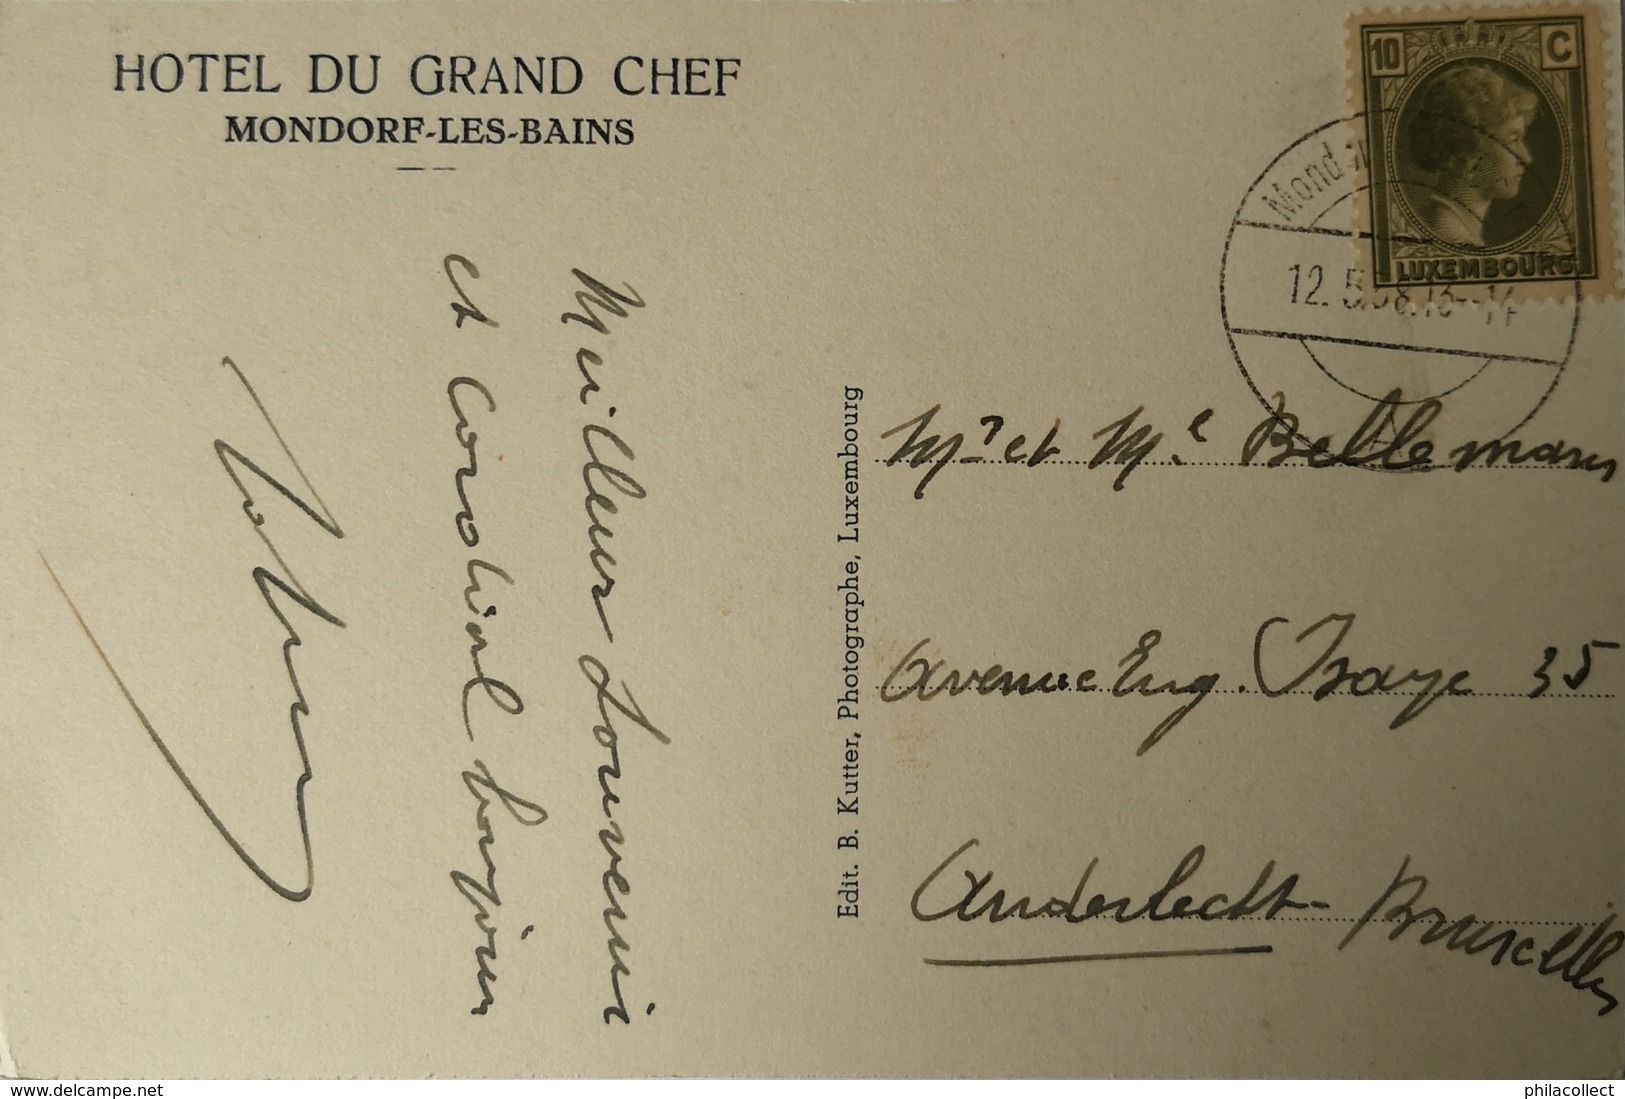 HOTEL DU GRAND CHEF
MONDORF-LES-BAINS
Meilleur souvenir
et cordial bonjour
Edit. B. Kutter, Photographe, Luxembourg
10 C
LUXEMBOURG
Mondor
12. 5.38.13--14
Mr et Me Bellemans
Avenue Eug. Ysaye 35
Anderlecht - Bruxelles
www.delcampe.net
philacollect